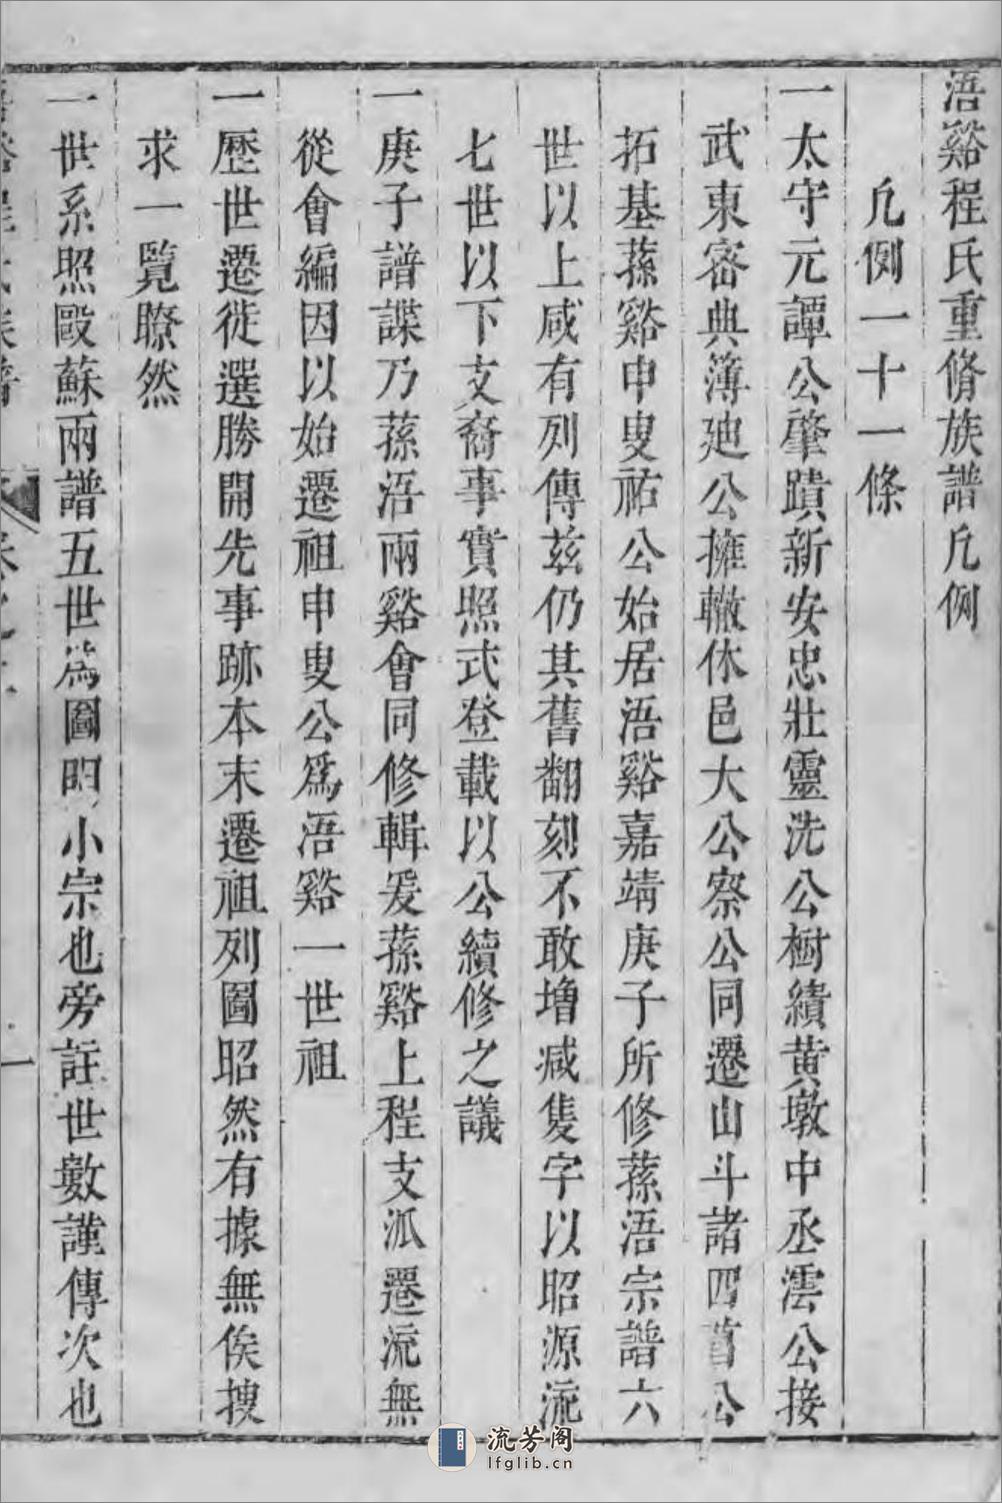 浯谿程氏重脩族譜凡例
凡例一十一條
一太守元譚公肇蹟新安忠壯靈洗公樹績黃墩中丞澐公接
武東密典簿廸公擁轍休邑大公察公同遷山斗諸四公
拓基蓀谿申叟祐公始居浯谿嘉靖庚子所修蓀浯宗譜六
世以上咸有列傳茲仍其舊翻刻不敢增减隻字以昭源流
七世以下支裔事實照式登載以公續修之議
一庚子譜諜乃蓀浯兩谿會同修輯爰蓀谿上程支派遷流無
從會編因以始遷祖申叟公爲浯谿一世祖
一歷世遷徙選勝開先事跡本末遷祖列圖昭然有據無俟搜
求一覽瞭然
一世系照歐蘇兩譜五世爲圖明小宗也旁註世數謹傳次也
一
流芳阁
lfglib.cn